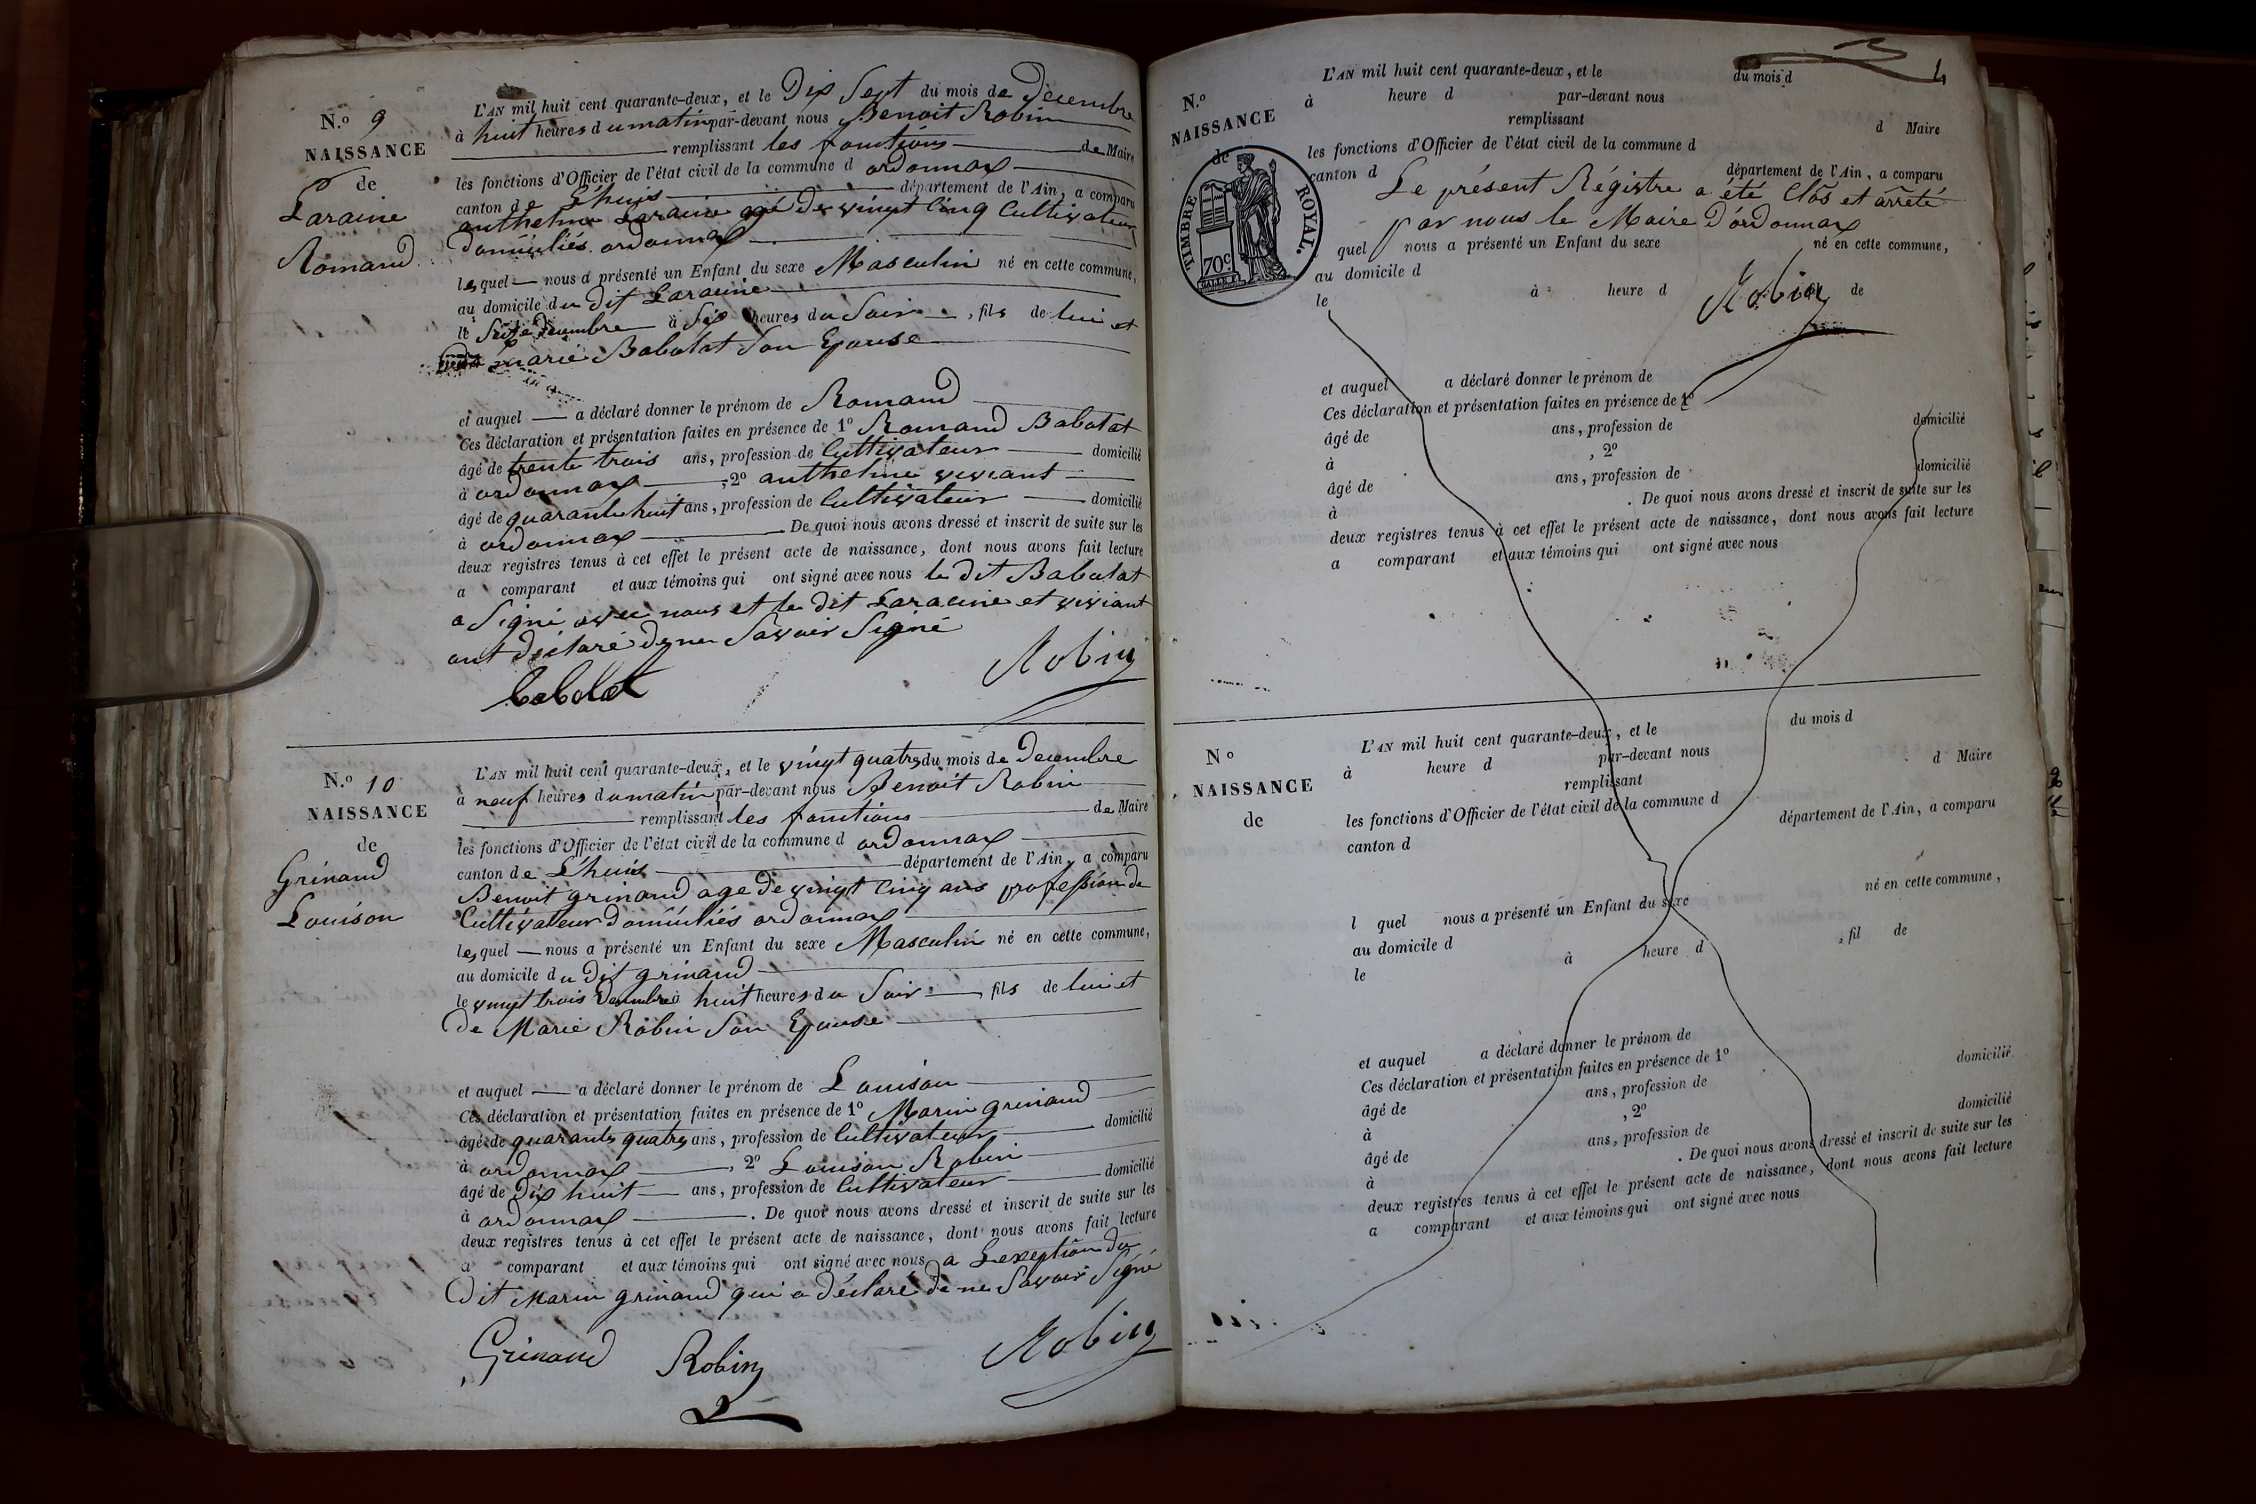 N.º 9
NAISSANCE
de
Laraine
Romand
L'AN mil huit cent quarante-deux, et le Dix Sept du mois de Decembre
à huit heures du matin par-devant nous Benoit Robin
remplissant les fonctions de Maire
les fonctions d'Officier de l'état civil de la commune d ordonnax
canton de L'huis département de l'Ain, a comparu
anthelme Laraine agé de vingt Cinq Cultivateur
Domiciliés ordonnax
lesquel nous a présenté un Enfant du sexe Masculin né en cette commune,
au domicile du dit Laraine
le Seize Decembre à Six heures du Soir, fils de lui et
marie Babolat Son Epouse
et auquel a déclaré donner le prénom de Romand
Ces déclaration et présentation faites en présence de 1º Romand Babolat
âgé de trente trois ans, profession de Cultivateur domicilié
à ordonnax, 2º anthelme viviant
âgé de quarante huit ans, profession de Cultivateur domicilié
à ordonnax De quoi nous avons dressé et inscrit de suite sur les
deux registres tenus à cet effet le présent acte de naissance, dont nous avons fait lecture
a comparant et aux témoins qui ont signé avec nous le dit Babolat
a Signé avec nous et le dit Laraine et viviant
ont déclaré de ne Savoir Signé
babolat Robin
N.º 10
NAISSANCE
de
Grinand
Louison
L'AN mil huit cent quarante-deux, et le vingt quatre du mois de Decembre
à neuf heures du matin par-devant nous Benoit Robin
remplissant les fonctions de Maire
les fonctions d'Officier de l'état civil de la commune d ordonnax
canton de L'huis département de l'Ain, a comparu
Benoit grinand age de vingt Cinq ans profession de
Cultivateur Domiciliés ordonnax
lesquel nous a présenté un Enfant du sexe Masculin né en cette commune,
au domicile du dit grinand
le vingt trois Decembre à huit heures du Soir, fils de lui et
De Marie Robin Son Epouse
et auquel a déclaré donner le prénom de Louison
Ces déclaration et présentation faites en présence de 1º Marin grinand
âgé de quarante quatre ans, profession de Cultivateur domicilié
à ordonnax, 2º Louison Robin
âgé de Dix huit ans, profession de Cultivateur domicilié
à ordonnax. De quoi nous avons dressé et inscrit de suite sur les
deux registres tenus à cet effet le présent acte de naissance, dont nous avons fait lecture
a comparant et aux témoins qui ont signé avec nous a L'exeption du
Dit Marin grinand qui a déclaré de ne Savoir Signé
Grinand Robin Robin
4
N.º
NAISSANCE
de
TIMBRE ROYAL.
70c
L'AN mil huit cent quarante-deux, et le du mois d
à heure d par-devant nous
remplissant d Maire
les fonctions d'Officier de l'état civil de la commune d
canton d département de l'Ain, a comparu
Le présent Régistre a été Clos et arrêté
par nous le Maire D'ordonnax
quel nous a présenté un Enfant du sexe né en cette commune,
au domicile d
le à heure d de
Robin
et auquel a déclaré donner le prénom de
Ces déclaration et présentation faites en présence de 1º
âgé de ans, profession de domicilié
à , 2º
âgé de ans, profession de domicilié
à . De quoi nous avons dressé et inscrit de suite sur les
deux registres tenus à cet effet le présent acte de naissance, dont nous avons fait lecture
a comparant et aux témoins qui ont signé avec nous
Nº
NAISSANCE
de
L'AN mil huit cent quarante-deux, et le du mois d
à heure d par-devant nous
remplissant d Maire
les fonctions d'Officier de l'état civil de la commune d
canton d département de l'Ain, a comparu
l quel nous a présenté un Enfant du sexe né en cette commune,
au domicile d
le à heure d , fil de
et auquel a déclaré donner le prénom de
Ces déclaration et présentation faites en présence de 1º
âgé de ans, profession de domicilié
à , 2º
âgé de ans, profession de domicilié
à . De quoi nous avons dressé et inscrit de suite sur les
deux registres tenus à cet effet le présent acte de naissance, dont nous avons fait lecture
a comparant et aux témoins qui ont signé avec nous